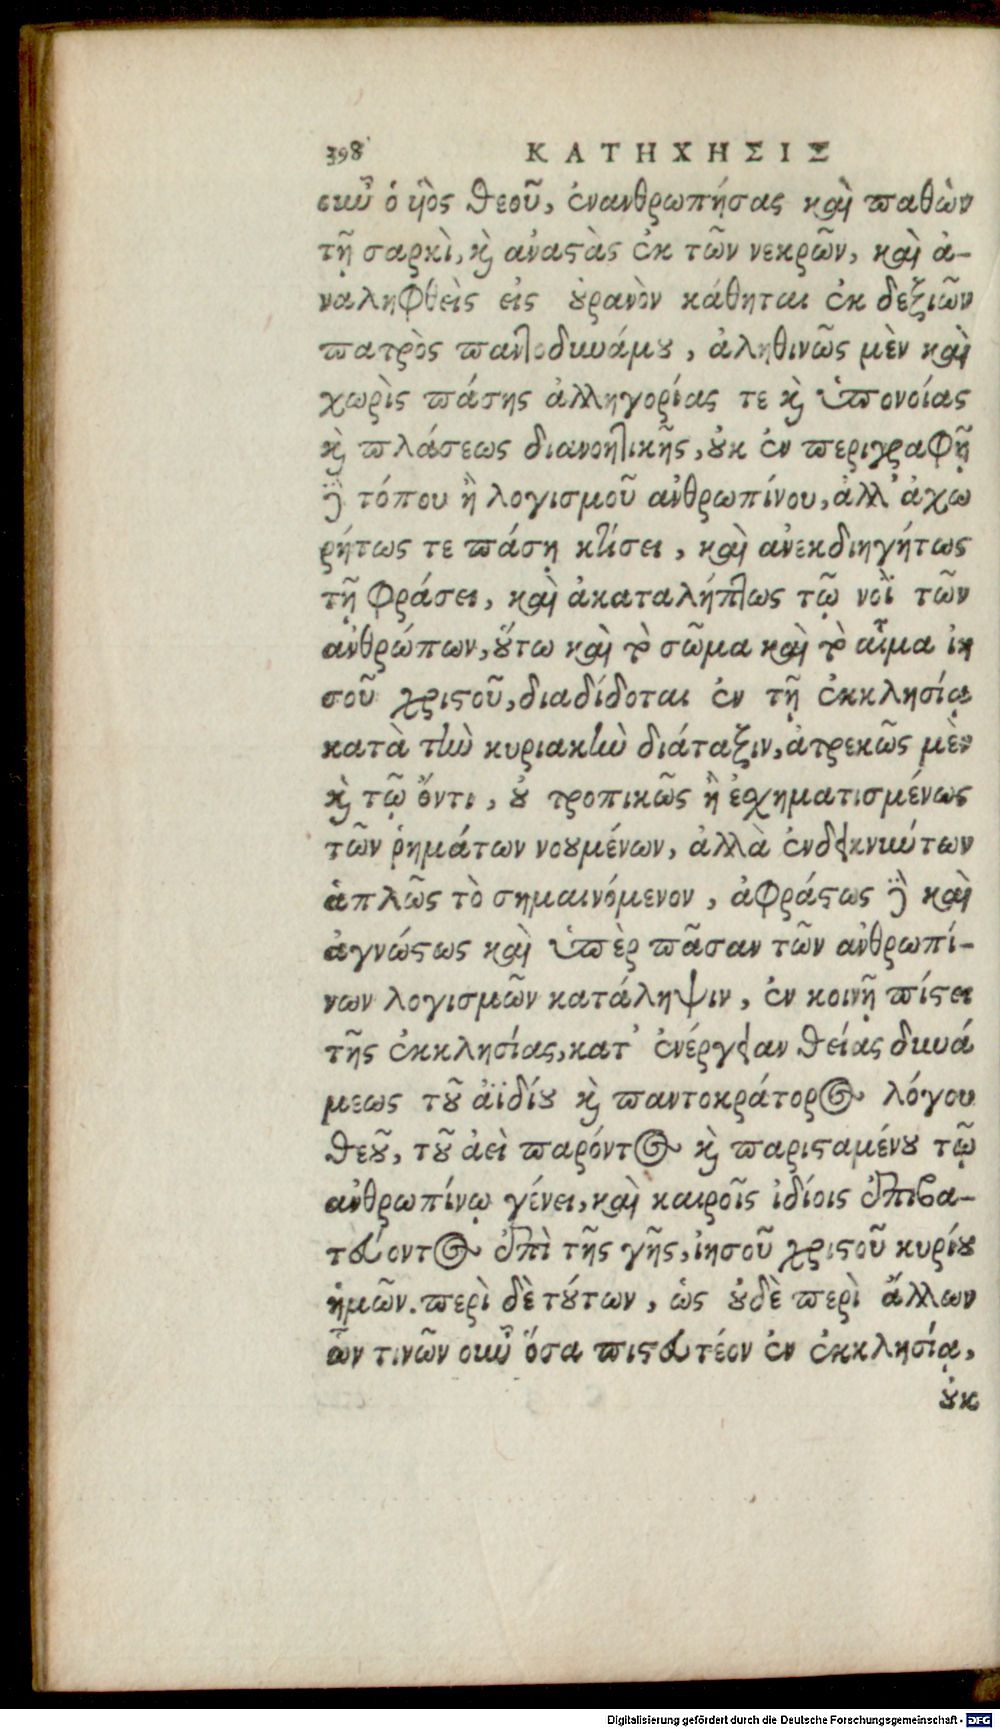 398 ΚΑΤΗΧΗΣΙΣ
οιω῀ ὁ ὑὸς θεοῦ, ἐνανθρωπήσας καὶ παθὼν
τῇ σαρκὶ, καὶ ἀναστὰς ἐκ τῶν νεκρῶν, καὶ ἀ-
ναληφθεὶς εἰς οὐρανὸν κάθηται ἐκ δεξιῶν
πατρὸς παντοδυνάμου, ἀληθινῶς μὲν καὶ
χωρὶς πάσης ἀλληγορίας τε καὶ ὑπονοίας
καὶ πλάσεως διανοητικῆς, οὐκ ἐν περιγραφῇ
δὲ τόπου ἢ λογισμοῦ ἀνθρωπίνου, ἀλλ' ἀχω
ρήτως τε πάσῃ κτίσει, καὶ ἀνεκδιηγήτως
τῇ φράσει, καὶ ἀκαταλήπτως τῷ νοῒ τῶν
ἀνθρώπων, οὕτω καὶ τὸ σῶμα καὶ τὸ αἷμα ἰη
σοῦ χριστοῦ, διαδίδοται ἐν τῇ ἐκκλησίᾳ
κατὰ τὴν κυριακὴν διάταξιν, ἀτρεκῶς μὲν
καὶ τῷ ὄντι, οὐ τροπικῶς ἢ ἐσχηματισμένως
τῶν ῥημάτων νουμένων, ἀλλὰ ἐνδεικνύντων
ἁπλῶς τὸ σημαινόμενον, ἀφράστως δὲ καὶ
ἀγνώστως καὶ ὑπὲρ πᾶσαν τῶν ἀνθρωπί-
νων λογισμῶν κατάληψιν, ἐν κοινῇ πίστει
τῆς ἐκκλησίας, κατ' ἐνέργειαν θείας δυνά
μεως τοῦ ἀϊδίου καὶ παντοκράτορος λόγου
θεοῦ, τοῦ ἀεὶ παρόντος καὶ παρισταμένου τῷ
ἀνθρωπίνῳ γένει, καὶ καιροῖς ἰδίοις ἐπιβα-
τεύοντος ἐπὶ τῆς γῆς, ἰησοῦ χριστοῦ κυρίου
ἡμῶν. περὶ δὲ τούτων, ὡς οὐδὲ περὶ ἄλλων
ὧν τινῶν οὖν ὅσα πιστευτέον ἐν ἐκκλησίᾳ,
οὐκ
Digitalisierung gefördert durch die Deutsche Forschungsgemeinschaft - DFG